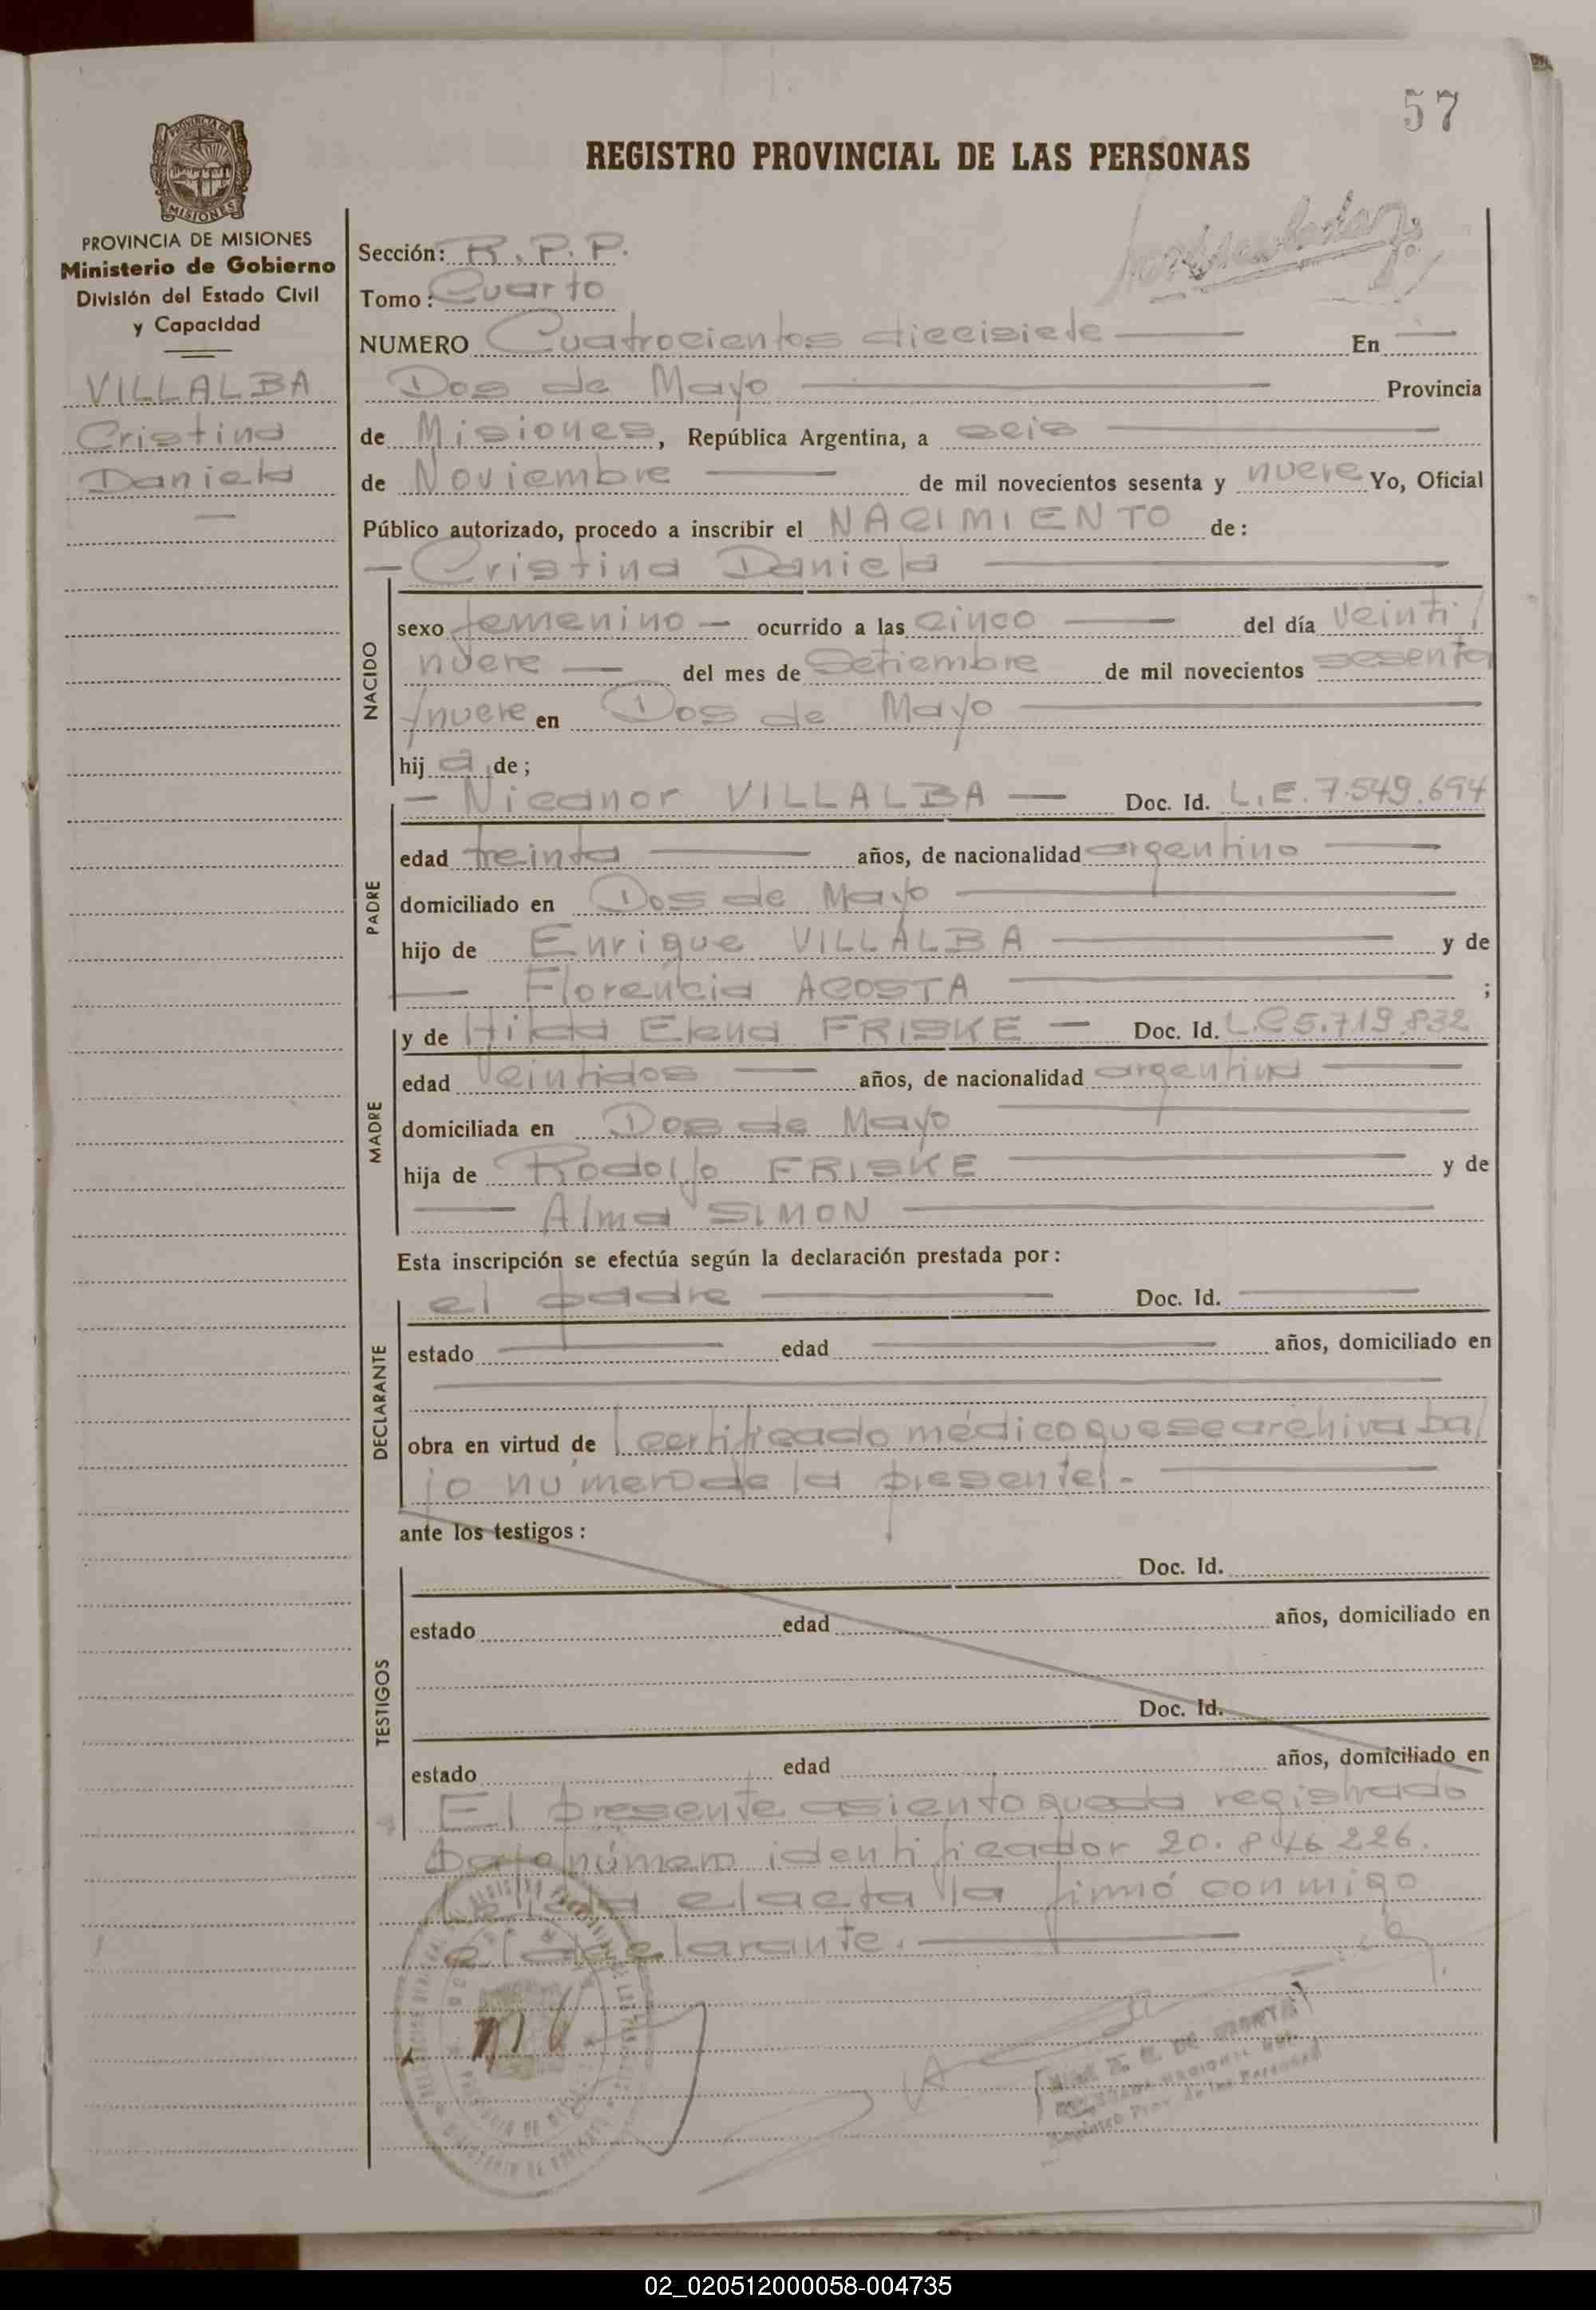 57
REGISTRO PROVINCIAL DE LAS PERSONAS
PROVINCIA DE MISIONES
Ministerio de Gobierno
División del Estado Civil
y Capacidad
VILLALBA
Cristina
Daniela
Sección: R.P.P.
Tomo: Cuarto
NUMERO Cuatrocientos diecisiete En
Dos de Mayo Provincia
de Misiones, República Argentina, a seis
de Noviembre de mil novecientos sesenta y nueve Yo, Oficial
Público autorizado, procedo a inscribir el NACIMIENTO de:
Cristina Daniela
NACIDO
sexo femenino ocurrido a las cinco del día veinti/
nueve del mes de Setiembre de mil novecientos sesenta
/nueve en Dos de Mayo
hij a de;
PADRE
Nicanor VILLALBA Doc. Id. L.E. 7.549.694
edad treinta años, de nacionalidad argentino
domiciliado en Dos de Mayo
hijo de Enrique VILLALBA y de
Florencia ACOSTA ;
MADRE
y de Hilda Elena FRISKE Doc. Id. L.C 5.719.832
edad veintidos años, de nacionalidad argentina
domiciliada en Dos de Mayo
hija de Rodolfo FRISKE y de
Alma SIMON
Esta inscripción se efectúa según la declaración prestada por:
DECLARANTE
el padre Doc. Id.
estado edad años, domiciliado en
obra en virtud de certificado médico que se archiva ba/
jo número de la presente.-
ante los testigos:
TESTIGOS
Doc. Id.
estado edad años, domiciliado en
Doc. Id.
estado edad años, domiciliado en
El presente asiento queda registrado
bajo número identificador 20.846.226.
Leida el acta la firmó conmigo
el declarante.
02_020512000058-004735